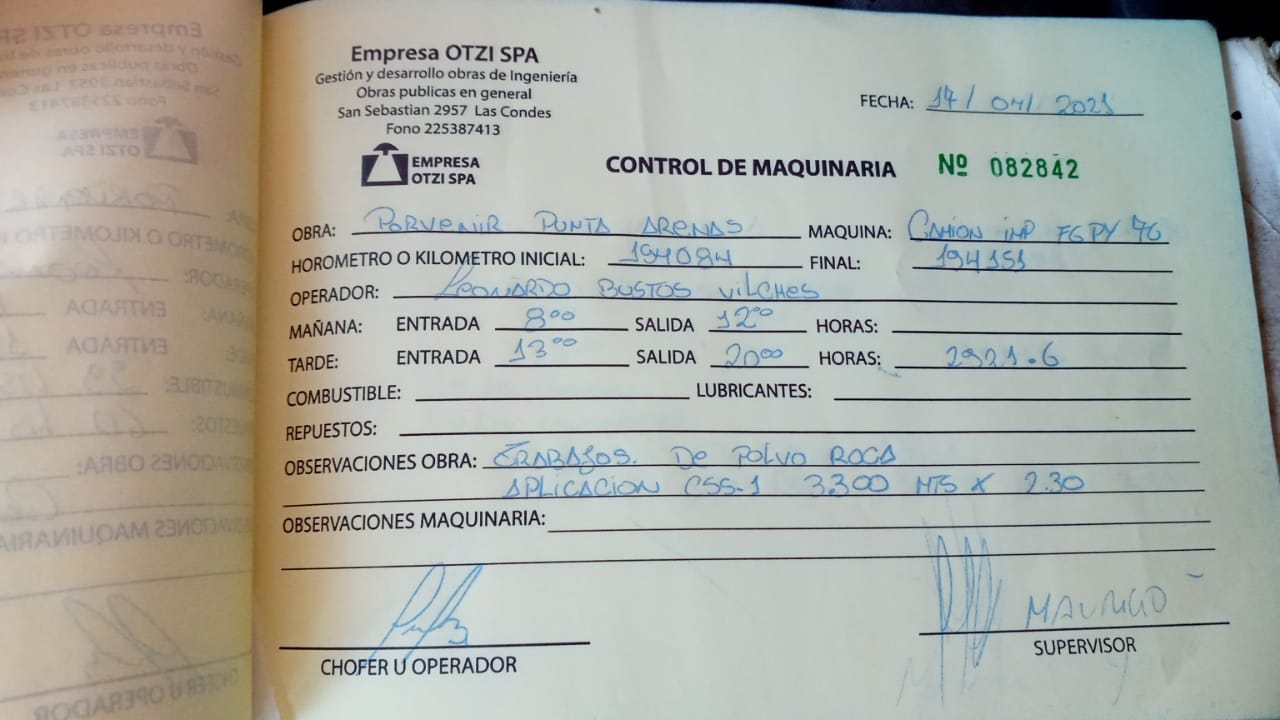 Empresa OTZI SPA
Gestión y desarrollo obras de Ingeniería
Obras publicas en general
San Sebastian 2957 Las Condes
Fono 225387413
EMPRESA
OTZI SPA
FECHA: 17/ 04/ 2025
CONTROL DE MAQUINARIA Nº 082842
OBRA: PORVENIR PUNTA ARENAS MAQUINA: CAMION IMP FGPY 76
HOROMETRO O KILOMETRO INICIAL: 194084 FINAL: 194151
OPERADOR: LEONARDO BUSTOS VILCHES
MAÑANA: ENTRADA 8⁰⁰ SALIDA 12⁰⁰ HORAS:
TARDE: ENTRADA 13⁰⁰ SALIDA 20⁰⁰ HORAS: 2921.6
COMBUSTIBLE: LUBRICANTES:
REPUESTOS:
OBSERVACIONES OBRA: TRABAJOS. DE POLVO ROCA
APLICACION CSS-1 3.300 MTS X 2.30
OBSERVACIONES MAQUINARIA:
MAURICIO
CHOFER U OPERADOR SUPERVISOR